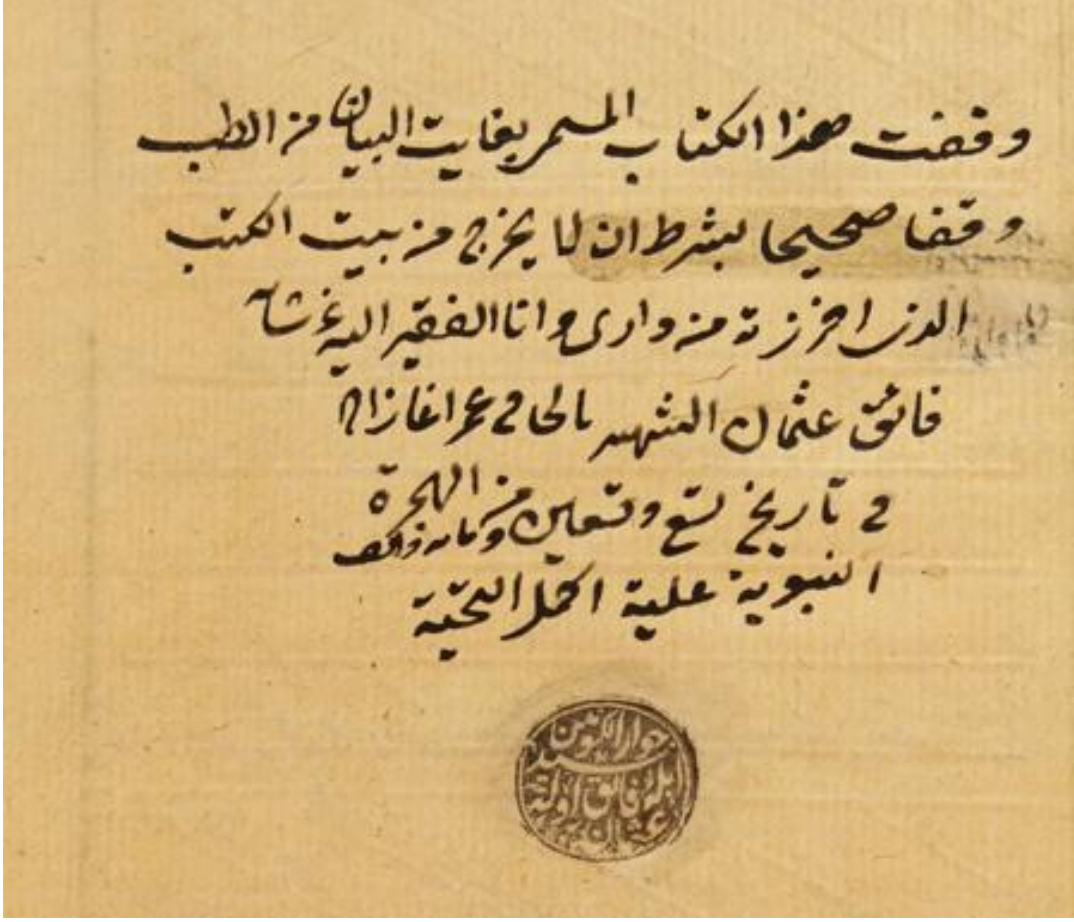 وقفت هذا الكتاب المسمى بغايت البيان من الطب
وقفا صحيحا بشرط ان لا يخرج من بيت الكتب
الذى افرزته من دارى وانا الفقير اليه عز شانه
فائق عثمان الشهير بالحاج عمر اغا زاده
فى تاريخ تسع وتسعين ومائه والف من الهجرة
النبوية علية اكمل التحية
فائق